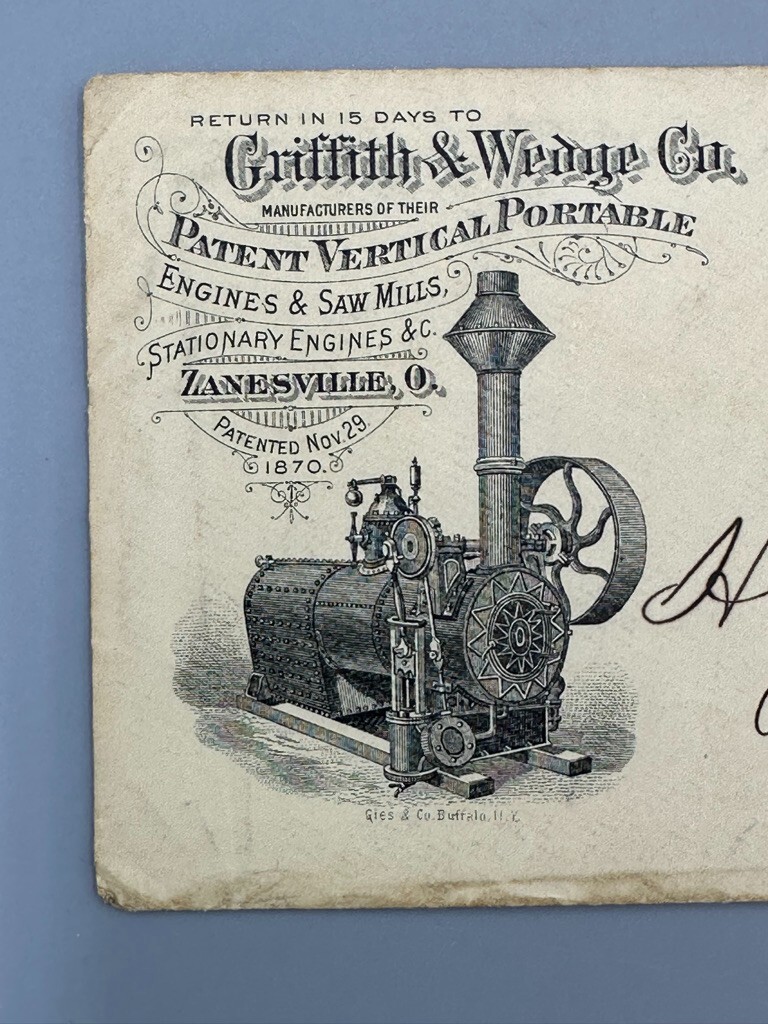 RETURN IN 15 DAYS TO
Griffith & Wedge Co.
MANUFACTURERS OF THEIR
PATENT VERTICAL PORTABLE
ENGINES & SAW MILLS,
STATIONARY ENGINES &C.
ZANESVILLE, O.
PATENTED NOV. 29.
1870.
Gies & Co. Buffalo, N.Y.